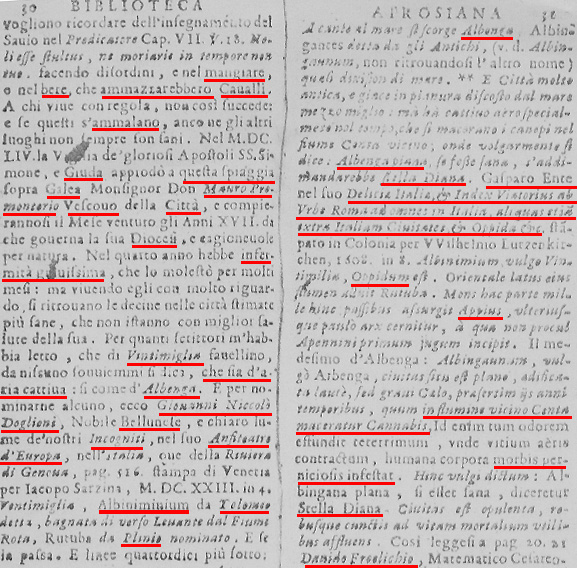 30 BIBLIOTECA
vogliono ricordare dell'insegnamento del
Saulo nel Predicatore Cap. VII. V. 18. No-
li esse stultus, ne moriaris in tempore non
tuo. facendo disordini, e nel mangiare,
e nel bere, che ammazzarebbero Caualli.
A chi viue con regola, non così succede:
e se questi s'ammalano, anco ue gli altri
luoghi non sempre son sani. Nel M.DC.
LIV. la de'gloriosi Apostoli SS. Si-
mone, e Giuda approdò a questa spiaggia
sopra Galea Monsignor Don Mauro Pro-
montorio Vescouo della Città, e compie-
rannosi il Mese venturo gli Anni XVII. da
che gouerna la sua Diocesi, e cagioneuole
per natura. Nel quarto anno hebbe infer-
mità grauissima, che lo molestò per molti
mesi: ma viuendo egli con molto riguar-
do, si ritrouano le decine nelle città stimate
più sane, che non istanno con miglior sa-
lute della sua. Per quanti scrittori m'hab-
bia letto, che di Vintimiglia fauellino,
da nissuno souuiemmi si dica, che sia d'a-
ria cattiua: si come d'Albenga. E per no-
minarne alcuno, ecco Giouanni Niccolò
Doglioni, Nobile Bellunese, e chiaro lu-
me de'nostri Incogniti, nel suo Anfiteatro
d'Europa, nell'Italia, oue della Riuiera
di Genoua, pag. 516. stampa di Venetia
per Iacopo Sarzina, M. DC. XXIII. in 4.
Ventimiglia, Albiniminium da Tolomeo
detta, bagnata di verso Leuante dal Fiume
Rota, Rutuba da Plinio nominato. E se
la passa. E linee quattordici più sotto:
AFROSIANA 31
Al canto al mare si scorge Albenga, Albin-
gances detta da gli Antichi, (v. d. Albin-
gaunum, non ritrouandosi l'altro nome)
quasi diuisa di mare. ** E Città molto
antica, e giace in pianura discosto dal mare
mezzo miglio: ma hà cattiuo aero special-
mente nel tempo, che si macorano i canepi nel
fiume Centa vicino; onde volgarmente si
dice: Albenga piana, se fosse sana, s'addi-
mandarebbe stella Diana. Gasparo Ente
nel suo Delitia Italia, & Index Viatorius ab
Vrbe Roma ad omnes in Italia, aliquas etiā
extra Italiam Ciuitates, & Oppida &c, stā-
pato in Colonia per VVilhelmo Lutzenkir-
chen, 1608. in 8. Albinimium, vulgo Vin-
timilia, Oppidum est. Orientale latus eius
flumen adnuit Rutuba. Mons hac parte mil-
le hinc passibus assurgit Appius, vlterius-
que paulò arx cernitur, à qua non procul
Apennini primum jugum incipit. Il me-
desimo d'Albenga: Albingaunum, vul-
gò Arbenga, ciuitas sita est plano, ædifica-
ta lautè, sed graui Cælo, præsertim ijs anni
temporibus, quum in flumine vicino Centa
maceratur Cannabis. Id enim tum odorem
effundit teterrimum, vnde vitium aëris
contractum, humana corpora morbis per-
niciosis infestat. Hinc vulgi dictum: Al-
bingana plana, si esset sana, diceretur
Stella Diana. Ciuitas est opulenta, re-
busque cunctis ad vitam mortalium vtili-
bus affluens. Così leggesi a pag. 20. 21
Danido Froelichio, Matematico Cesareo-